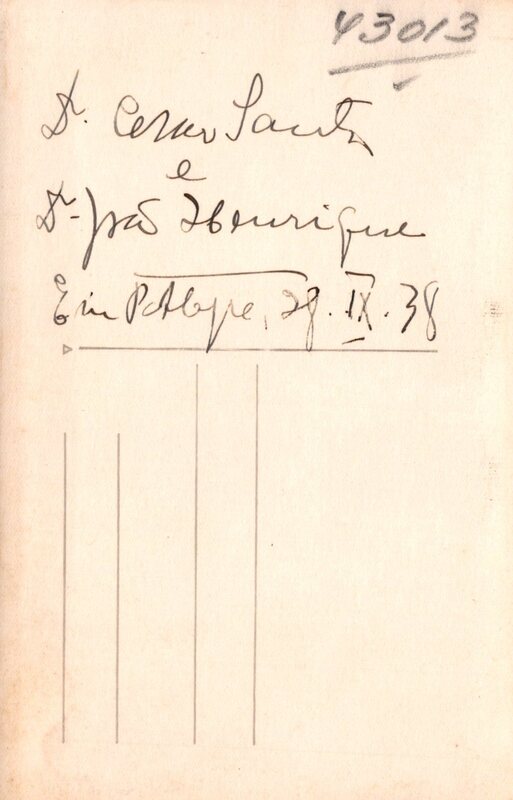 43013
Dr. Cesar Santos
e
Dr. João Henrique
Em P. Alegre, 28.IX.38